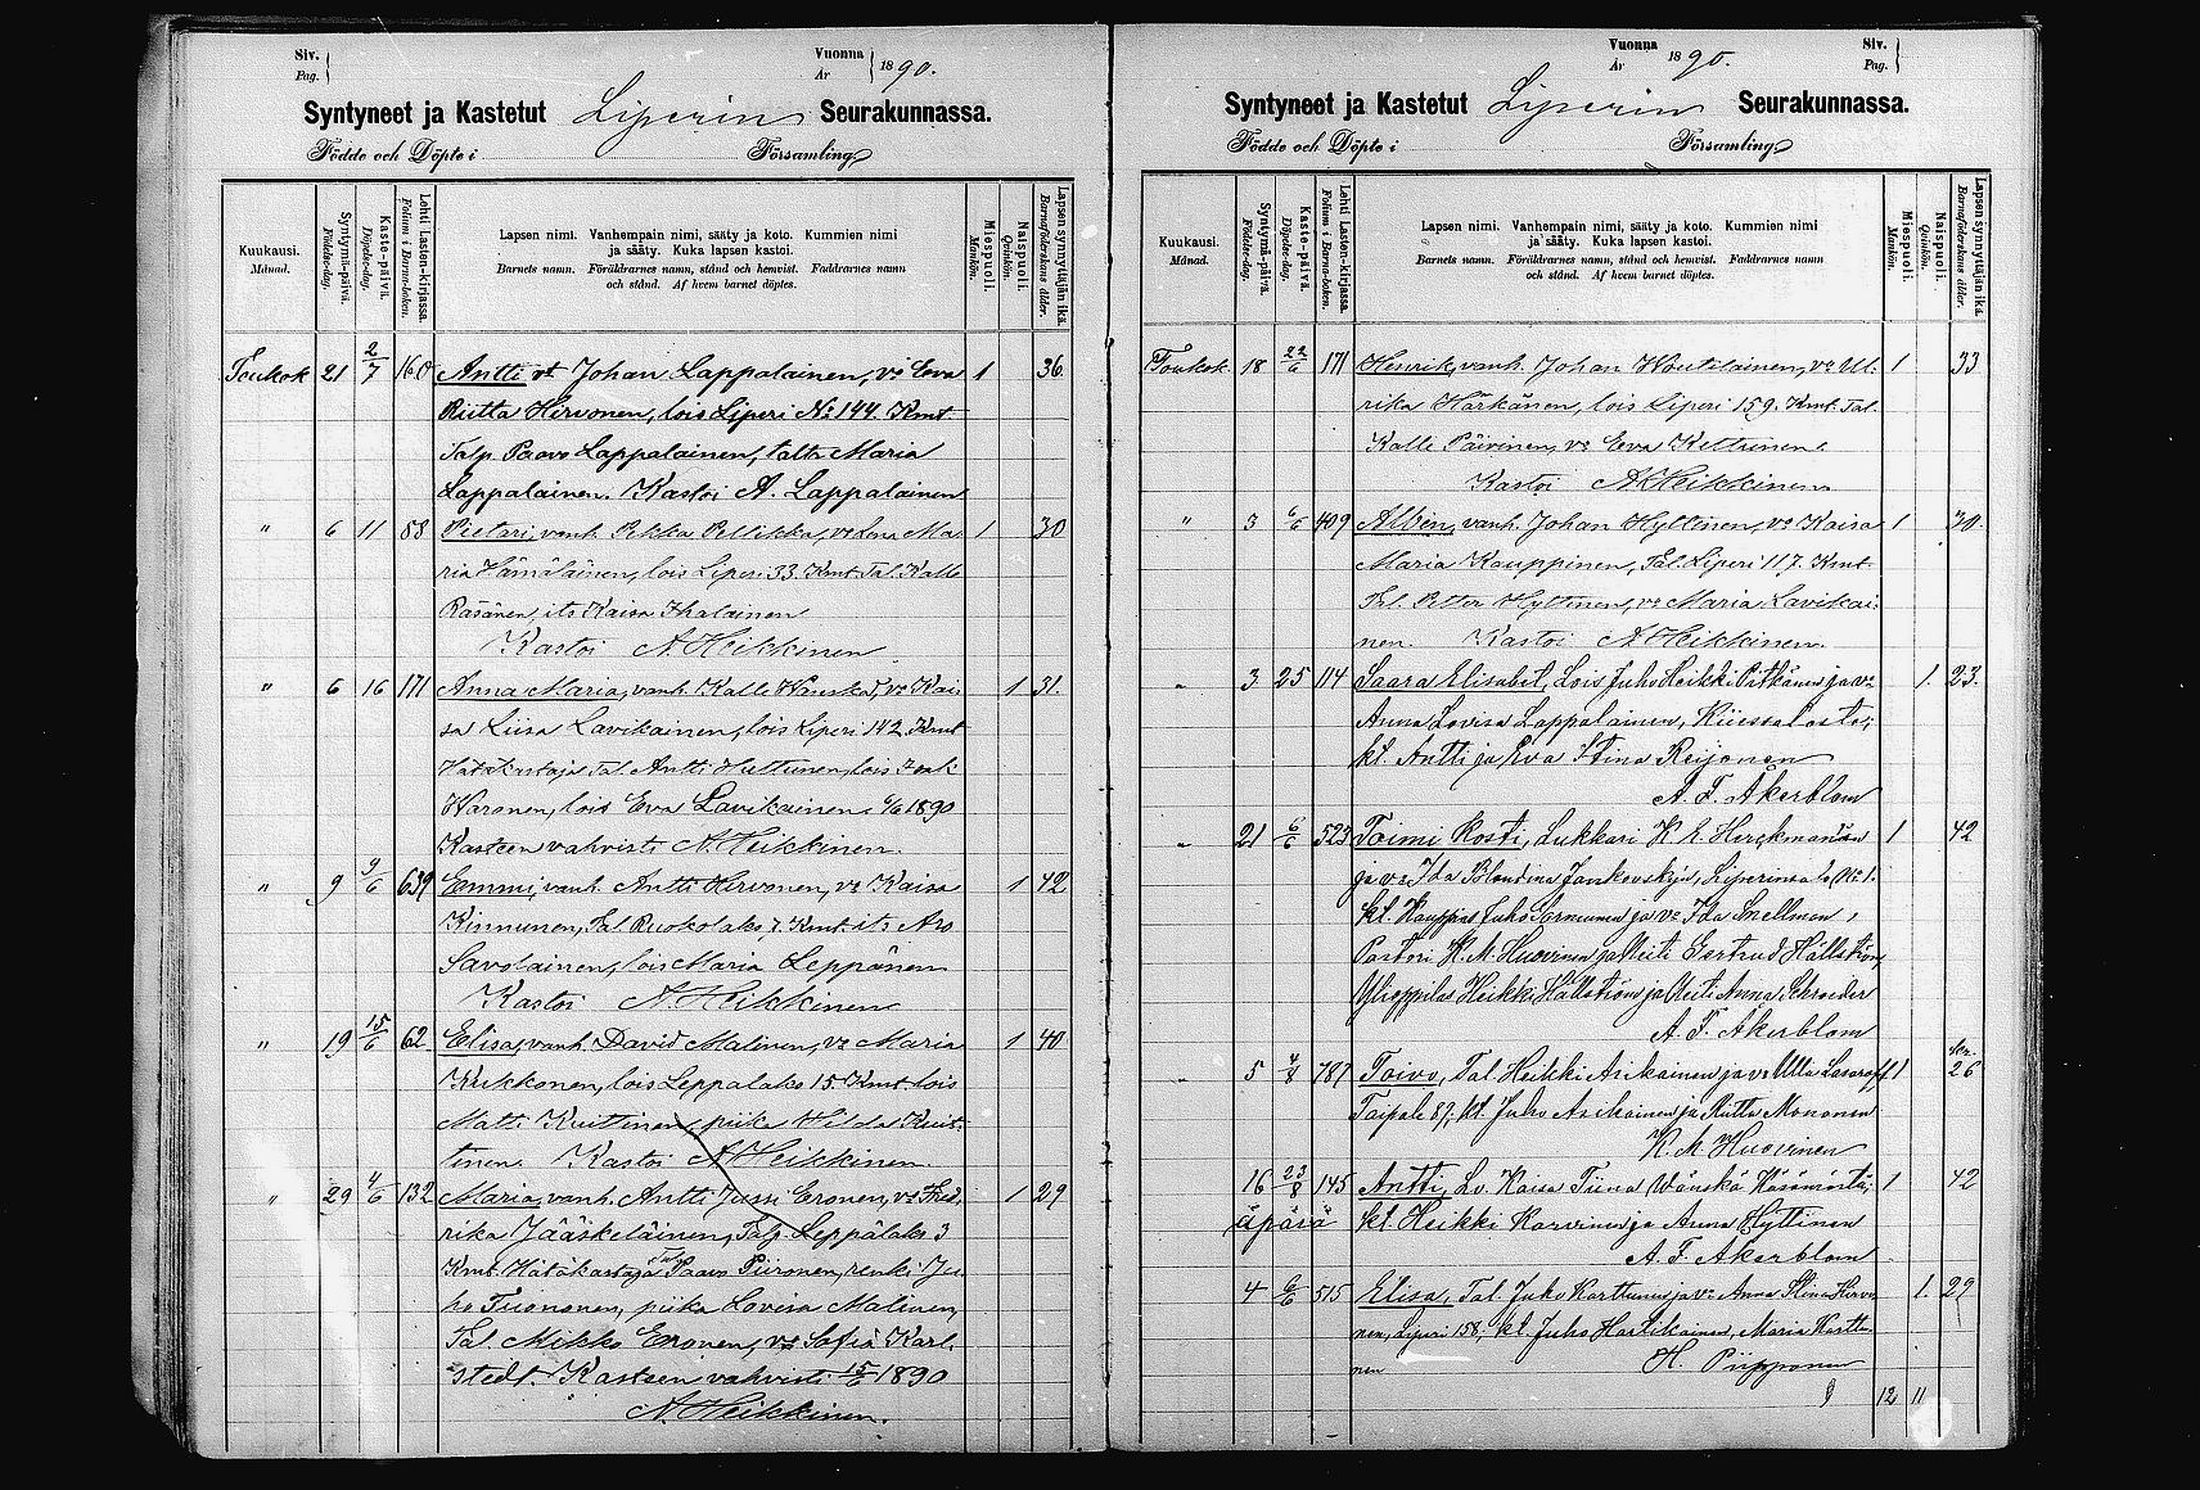 Siv.
Pag.
Vuonna
År
1890.
Syntyneet ja Kastetut Liperin Seurakunnassa.
Födde och Döpte i Församling
Kuukausi.
Månad.
Syntymä-päivä.
Födelse-dag.
Kaste-päivä.
Döpelse-dag.
Lehti Lasten-kirjassa.
Folium i Barna-boken.
Lapsen nimi. Vanhempain nimi, sääty ja koto. Kummien nimi
ja sääty. Kuka lapsen kastoi.
Barnets namn. Föräldrarnes namn, stånd och hemvist. Faddrarnes namn
och stånd. Af hvem barnet döptes.
Miespuoli.
Mankön.
Naispuoli.
Qvinkön.
Lapsen synnyttäjän ikä.
Barnaföderskans ålder.
Toukok 21 2/7 160 Antti vt Johan Lappalainen, vo Eeva 1 36
Riitta Hirvonen, lois Liperi No 144. Kmt
Talp. Paavo Lappalainen, taltr Maria
Lappalainen. Kastoi A. Lappalainen
" 6 11 58 Pietari, vanh. Pekka Pellikka, vo Lena Ma- 1 30
ria Hämäläinen, lois Liperi 33. Kmt. Tal. Kalle
Räsänen, its Kaisa Ihalainen
Kastoi A. Heikkinen
" 6 16 171 Anna Maria, vanh. Kalle Wänskä, vo Kai- 1 31.
sa Liisa Lavikainen, lois Liperi 142. Kmt
Hätäkastaja Tal. Antti Huttunen, lois
Waronen, lois Eva Lavikainen. 6/6 1890
Kasteen vahvisti A. Heikkinen.
" 9 9/6 639 Emmi, vanh. Antti Hirvonen, vo Kaisa 1 42
Kinnunen, Tal Ruokolaks 7. Kmt. its Aro
Savolainen, lois Maria Leppänen
Kastoi A. Heikkinen
" 19 15/6 62. Elisa, vanh. David Malinen, vo Maria 1 40
Kukkonen, lois Leppälaks 15. Kmt. lois
Matti Kuittinen, piika Hilda Kuit-
tinen. Kastoi A. Heikkinen.
" 29 4/6 132 Maria, vanh. Antti Jussi Eronen, vo Fred- 1 29
rika Jääskeläinen, Talp. Leppälaks 3
Kmt. Hätäkastaja Tal Paavo Piironen, renki Ju-
ho Tuononen, piika Lovisa Malinen,
Tal. Mikko Eronen, vo Sofia Karl-
stedt. Kasteen vahvisti 15/6 1890
A. Heikkinen.
Vuonna
År
1890.
Siv.
Pag.
Syntyneet ja Kastetut Liperin Seurakunnassa.
Födde och Döpte i Församling
Kuukausi.
Månad.
Syntymä-päivä.
Födelse-dag.
Kaste-päivä.
Döpelse-dag.
Lehti Lasten-kirjassa.
Folium i Barna-boken.
Lapsen nimi. Vanhempain nimi, sääty ja koto. Kummien nimi
ja sääty. Kuka lapsen kastoi.
Barnets namn. Föräldrarnes namn, stånd och hemvist. Faddrarnes namn
och stånd. Af hvem barnet döptes.
Miespuoli.
Mankön.
Naispuoli.
Qvinkön.
Lapsen synnyttäjän ikä.
Barnaföderskans ålder.
Toukok. 18 22/6 171 Henrik, vanh. Johan Woutilainen, vo Ul- 1 33
rika Härkänen, lois Liperi 159. Kmt. Tal.
Kalle Päivinen, vo Eeva Kettunen.
Kastoi A. Heikkinen
" 3 6/6 409 Albin, vanh. Johan Hyttinen, vo Kaisa 1 30.
Maria Kauppinen, Tal. Liperi 117. Kmt.
Tal. Petter Hyttinen, vo Maria Lavikai-
nen. Kastoi A. Heikkinen.
" 3 25 114 Saara Elisabet, Lois Juho Heikki Pitkänen ja vo 1. 23.
Anna Lovisa Lappalainen, Kiiessalosta;
kt. Antti ja Eva Stina Reijonen
A. F. Åkerblom
" 21 6/6 523 Toimi Kosti, Lukkari K. E. Herckmanin 1 42
ja vo Ida Blondina Jankovskyn, Liperinsalo No 1.
kt. Kauppias Juho Sormunen ja vo Ida Snellman,
Pastori K. M. Huovinen ja Neiti Gertrud Hällström,
Ylioppilas Heikki Hällström ja Neiti Anna Schroeder
A. F. Åkerblom
" 5 4/8 787 Toivo, Tal. Heikki Asikainen ja vo Ulla Lasaroff 1 26
Taipale 89; kt. Juho Asikainen ja Riitta Mononen
K. M. Huovinen
16 23/8 145 Antti, Lo. Kaisa Tiina Wänskä Käsämästä; 1 42
äpärä kt. Heikki Karvinen ja Anna Hyttinen
A. F. Åkerblom
4 6/6 515 Elisa, Tal. Juho Karttunen ja vo Anna Stina Hirvo- 1. 29
nen, Liperi 158; kt. Juho Hartikainen, Maria Karttu-
nen H. Piipponen
12 11